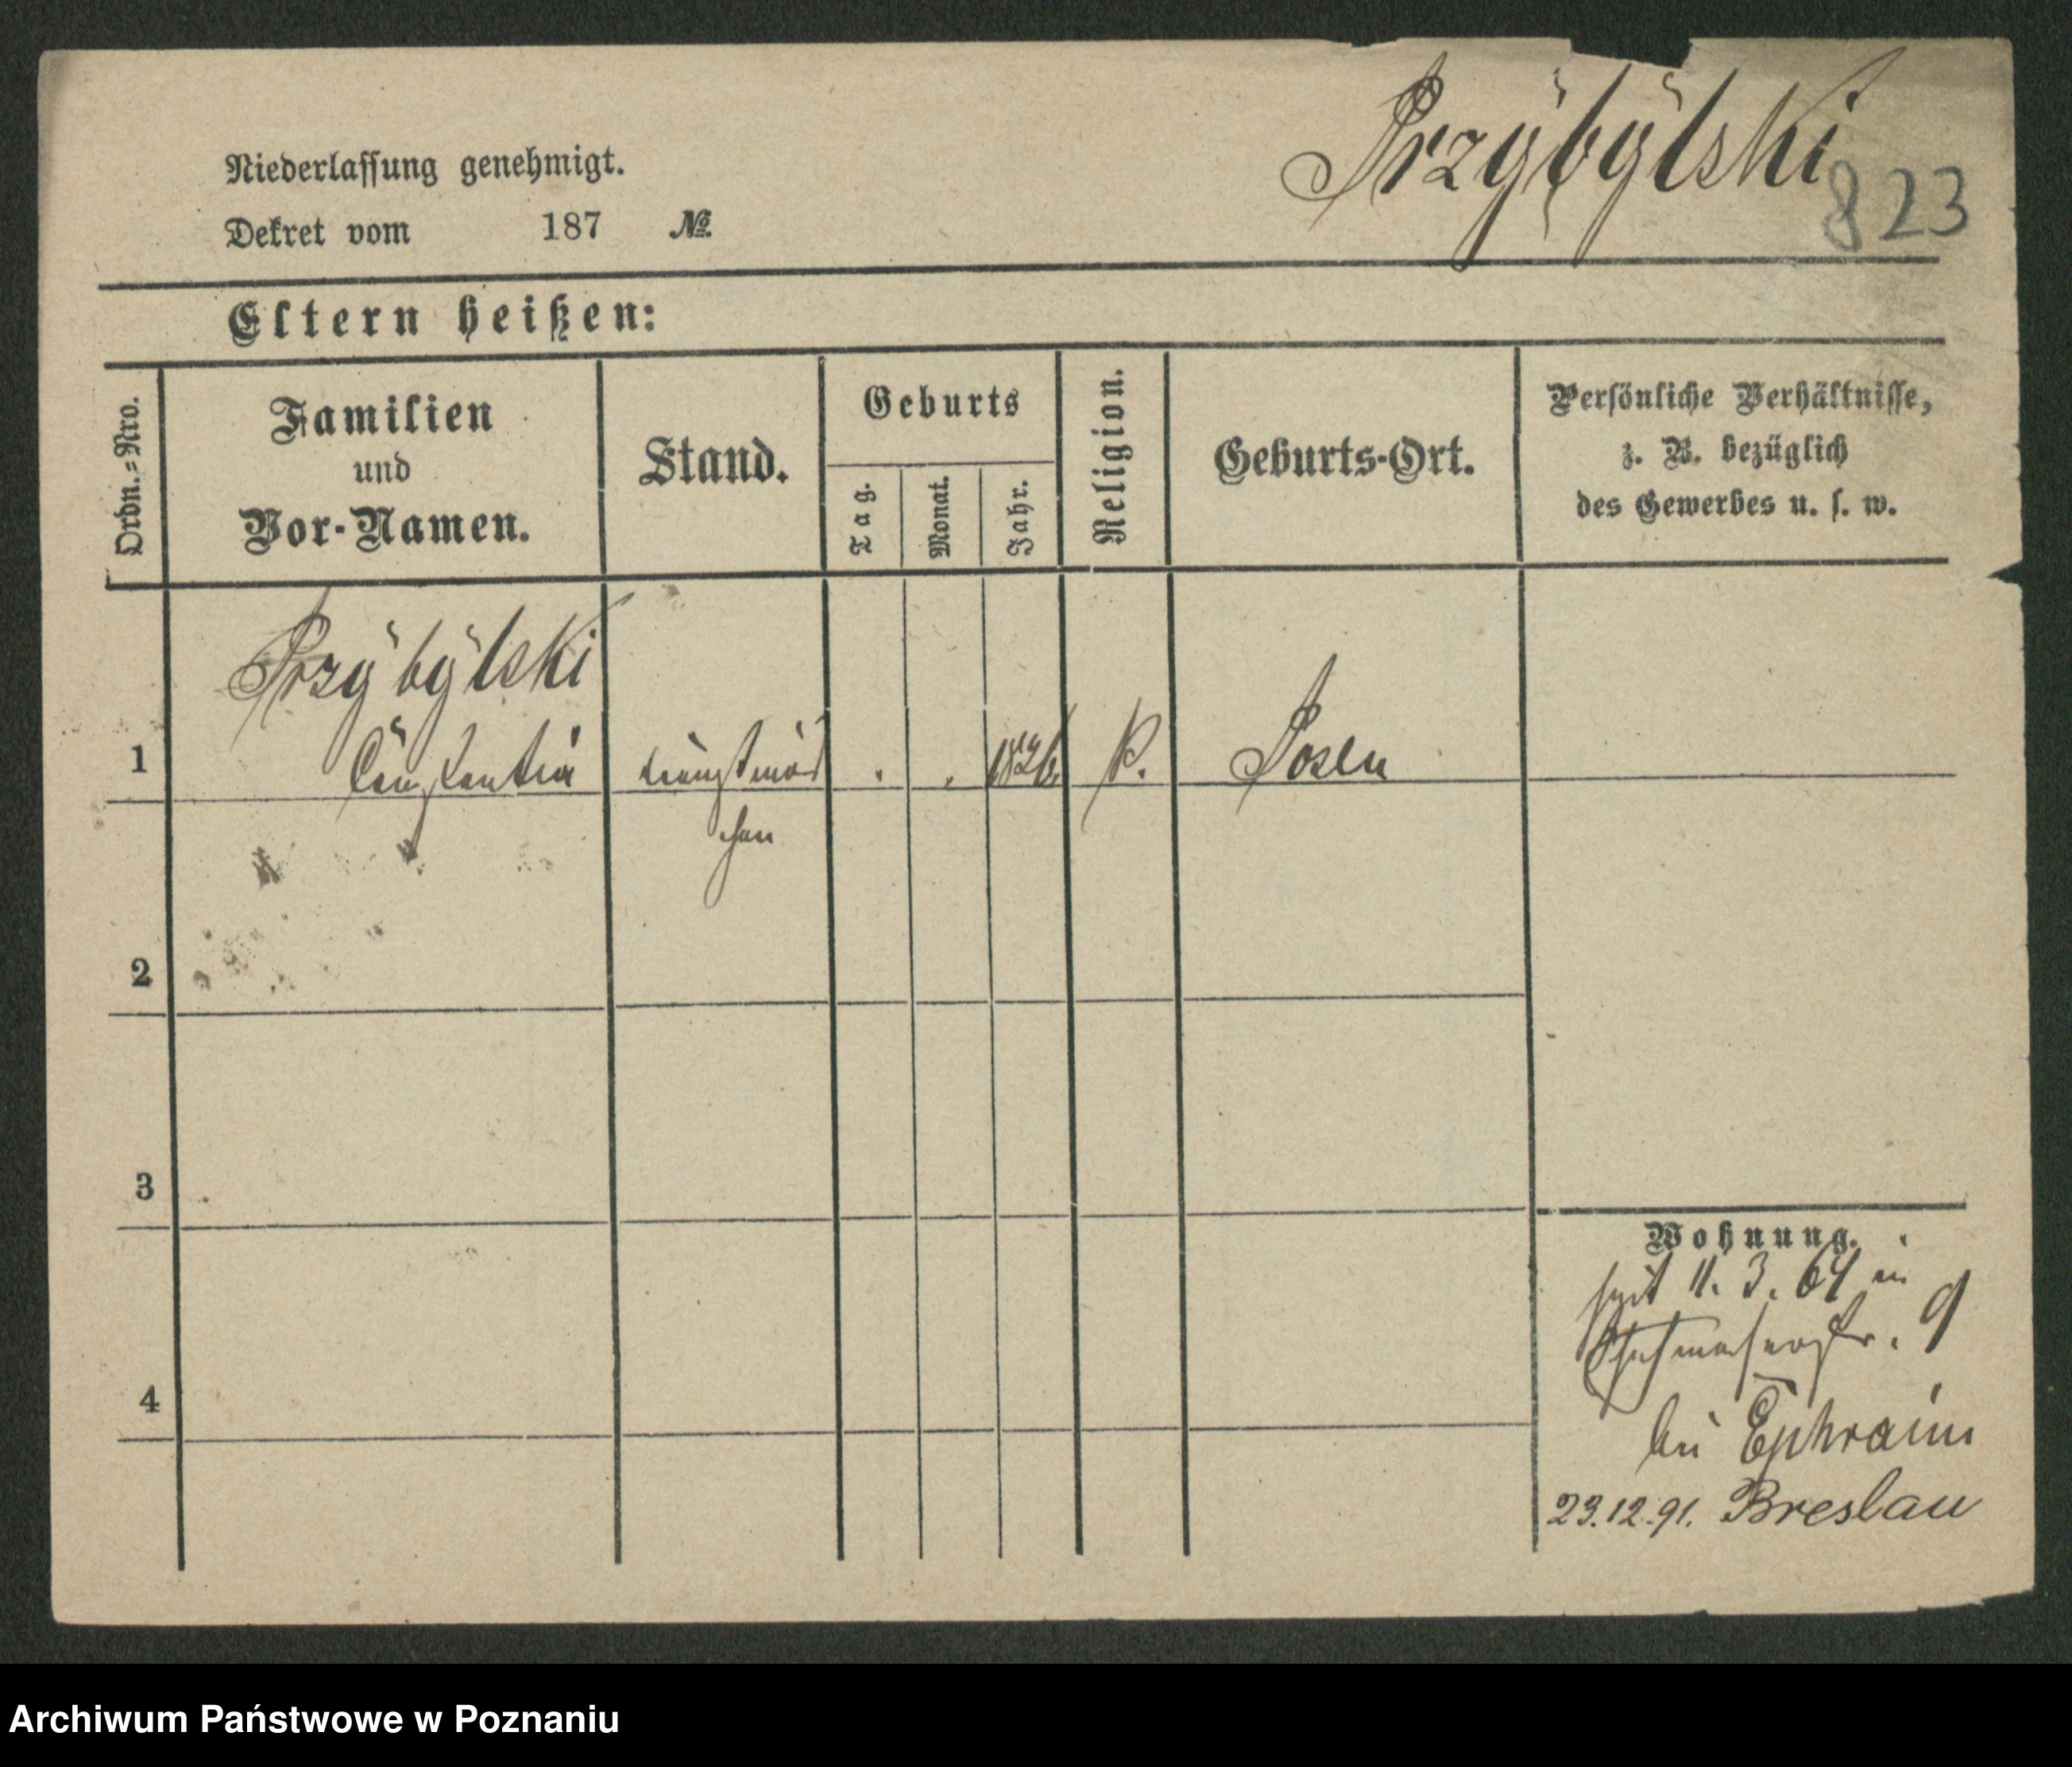 Przÿbÿlski
823
Niederlassung genehmigt.
Dekret vom 187 №
Eltern heißen:
Ordn.=Nro.
Familien
und
Vor-Namen.
Stand.
Geburts
Tag.
Monat.
Jahr.
Religion.
Geburts-Ort.
Persönliche Verhältnisse,
z. B. bezüglich
des Gewerbes u. s. w.
Przÿbÿlski
1 Constantia Dienstmäd . . 1826 K. Posen
chen
2
3
4
Wohnung.
seit 11. 3. 64 in
Schuhmacherstr. 9
bei Ephraim
23.12.91. Breslau
Archiwum Państwowe w Poznaniu